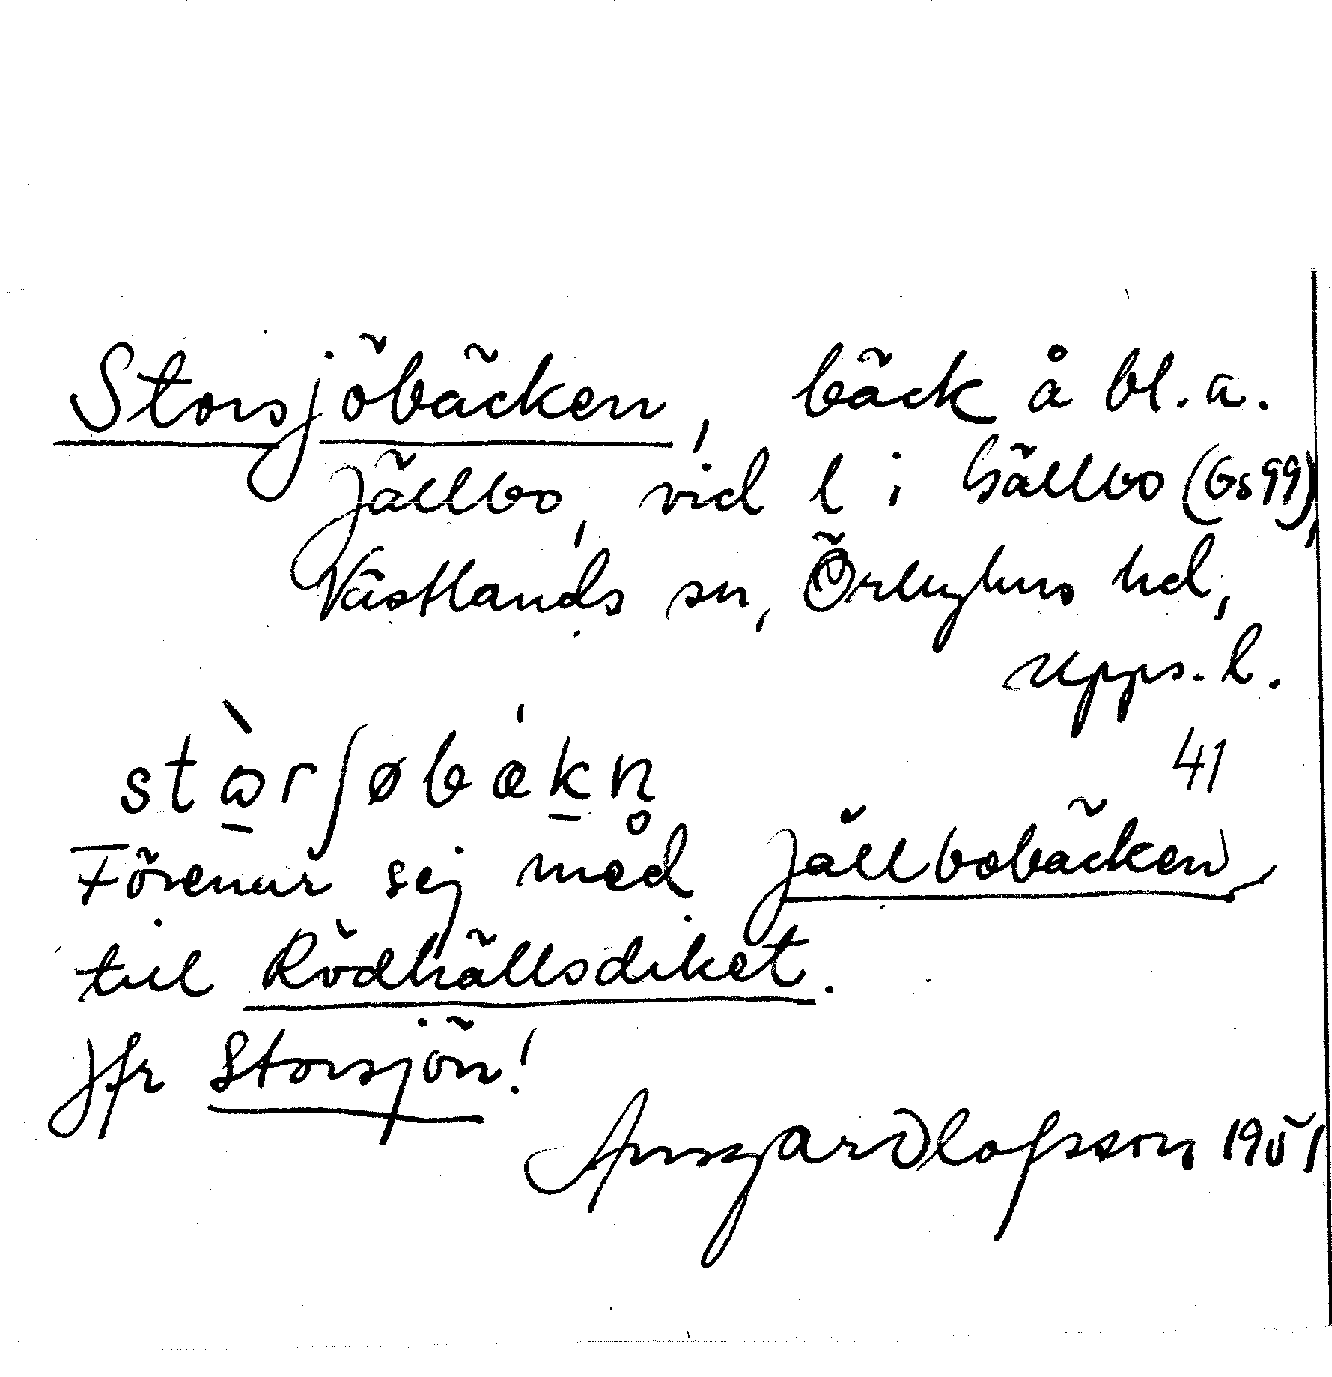 Storsjöbäcken, bäck å bl.a.
Jällbo, vid l i Hällbo (Gs99),
Västlands sn, Örbyhus hd,
Upps. l.
41
Förenar sej med Jällbobäcken
till Rödhällsdiket.
Jfr Storsjön!
Ansgar Olofsson 1951